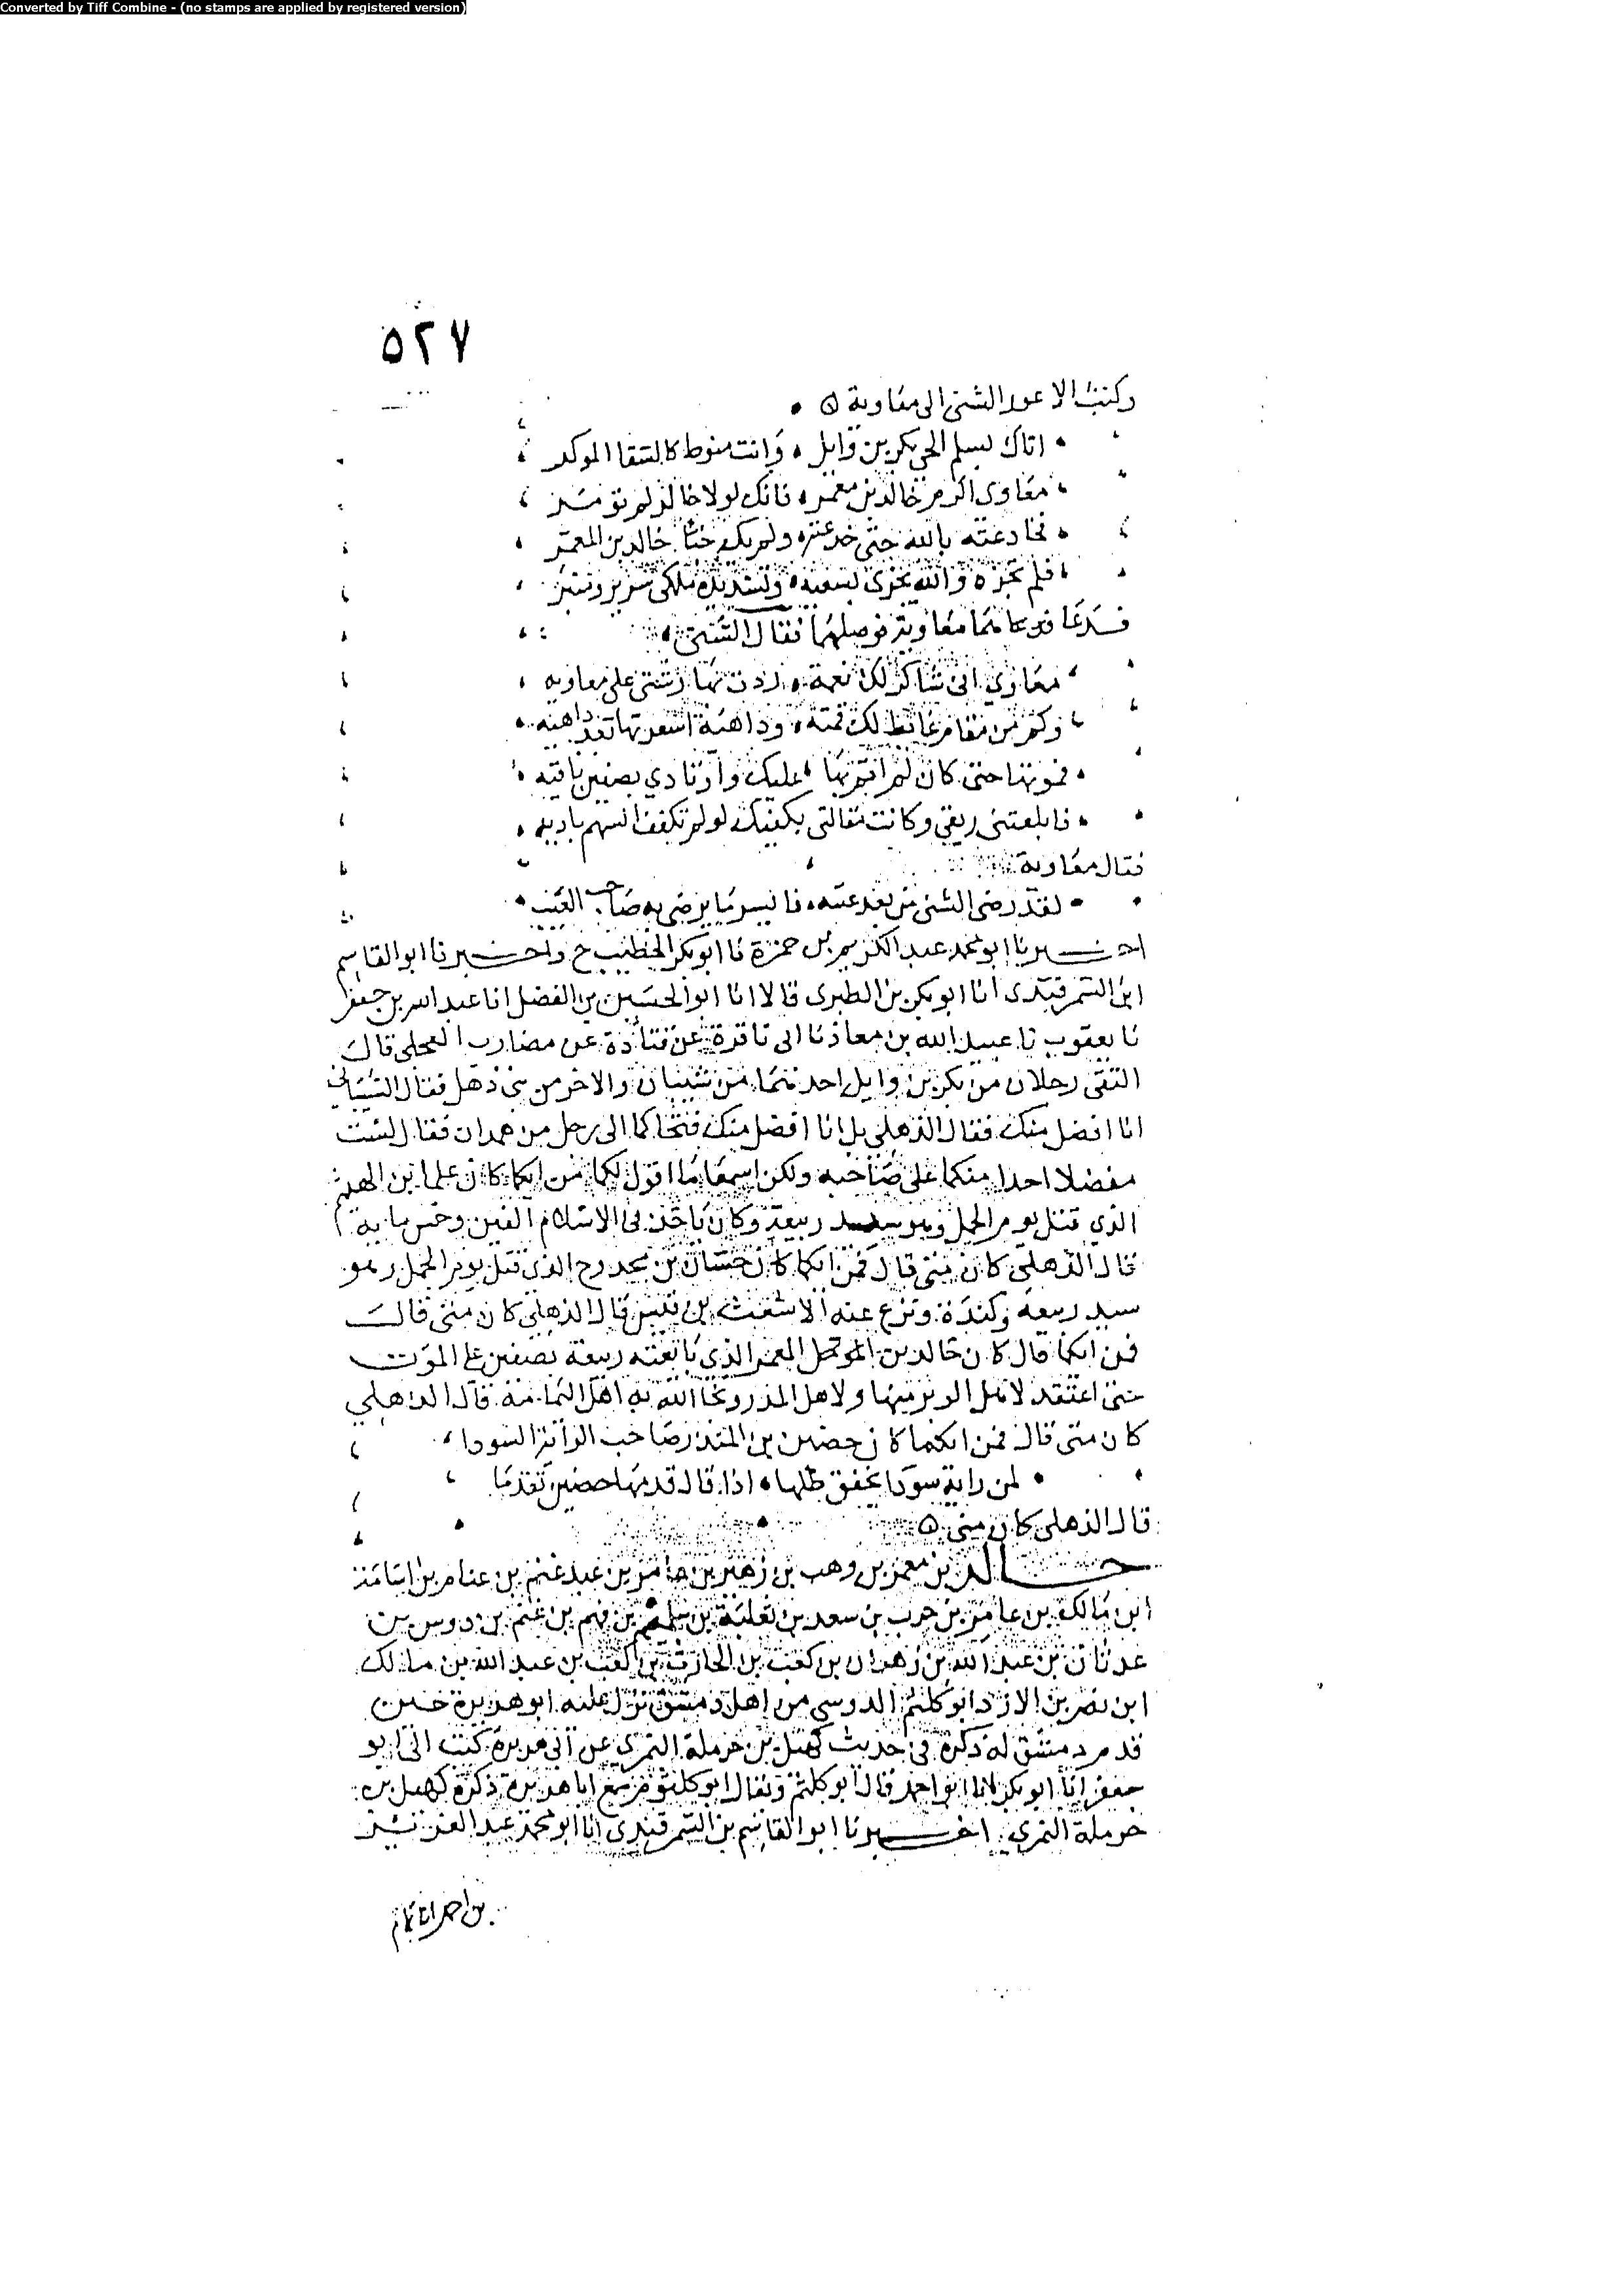 Converted by Tiff Combine - (no stamps are applied by registered version)
٥٢٧
وكتب الاعور الشنى الى معاوية
اتاك بسلم الحي بكر بن وايل وانت منوط كالسقا الموكر
معاوى اكرم خالد بن معمر فانك لولا خالد لم تومر
فخادعته بالله حتى خدعته ولم يك خبا خالد بن المعمر
فلم تجزه والله يجزى بسعيه وتسديده ملكى سرير ومنبر
فدعا معاوية فوصلهما فقال الشنى
معاوي انى شاكر لك نعمة رددت بها ريشتى على معاويه
وكم من مقام غايظ لك قمته وداهية اسعرتها بعد داهيه
فموتها حتى كان لم اقم بها عليك واوتادي بصفين باقيه
فابلعتنى ريقي وكانت مقالتى بكفيك لو لم تكفف السهم باديه
فقال معاوية
لقد رضى الشنى من بعد عتبه فايسر ما يرضى به صاحب العتب
اخبرنا ابو محمد عبد الكريم بن حمزة نا ابو بكر الخطيب ح واخبرنا ابو القاسم
ابن السمرقندى انا ابو بكر بن الطبرى قالا انا ابو الحسين بن الفضل انا عبد الله بن جعفر
نا يعقوب نا عبيد الله بن معاذ نا ابى نا قرة عن قتادة عن مضارب العجلى قال
التقى رجلان من بكر بن وايل احدهما من شيبان والاخر من بنى ذهل فقال الشيبانى
انا افضل منك فقال الذهلى بل انا افضل منك فتحاكما الى رجل من همدان فقال لست
مفضلا احدا منكما على صاحبه ولكن اسمعا ما اقول لكما من ايكما كان علبا بن الهيثم
الذي قتل يوم الجمل وهو سيد ربيعة وكان ياخذ فى الاسلام الفين وخمس ماية
قال الذهلى كان منى قال فمن ايكما كان حسان بن محدوج الذى قتل يوم الجمل وهو
سيد ربيعة وكندة ونزع عنه الاشعث بن قيس قال الذهلى كان منى قال
فمن ايكما قال كان خالد بن المعمر الذي بايعته ربيعة بصفين على الموت
حتى اعتقد لاهل ولاهل المذر ونجا الله به اهل اليمامة قال الذهلي
كان منى قال فمن ايكما كان حضين بن المنذر صاحب الراية السودا
لمن راية سودا يخفق ظلها اذا قال قدمها حضين تقدما
قال الذهلى كان منى
خالد بن معمر بن وهب بن زهير بن عامر بن عبد غنم بن عامر بن اسامة
ابن مالك بن عامر بن حرب بن سعد بن ثعلبة بن سليم بن فهم بن غنم بن دوس بن
عدثان بن عبد الله بن زهران بن كعب بن الحارث بن كعب بن عبد الله بن مالك
ابن نصر بن الازد ابو كلثم الدوسي من اهل دمشق نزل عليه ابو هريرة حين
قدم دمشق له ذكر فى حديث كهيل بن حرملة النمرى عن ابى هريرة كتب الى ابو
جعفر انا ابو بكر انا ابو احمد قال ابو كلثم ويقال ابو كلثوم سمع ابا هريرة ذكره كهيل بن
حرملة النمرى اخبرنا ابو القاسم بن السمرقندى انا ابو محمد عبد العزيز
بن احمد انا تمام